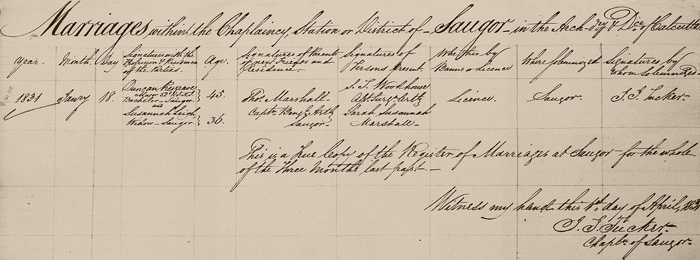 Marriages within the Chaplaincy, Station or District of Saugor in the Arch-d'ry & Dce. of Calcutta
Year. Month. Day of the Parties. Age. Signatures of Parents Signatures of Persons Present. Whether by Banns or Licence Where Solemnized Signatures by whom Solemnized
1831 Janry 18. Duncan 45. Thos. Marshall S. T. Woodhouse Licence. Saugor. J. J. Tucker.
Bachelor - Saugor Captn. Bengl. Arty. Asst. Surg. Arty.
and
Susannah Leigh Saugor Sarah Susannah
Widow - Saugor 36. Marshall
This is a True Copy of the Register of Marriages at Saugor for the whole
of the Three Months last past.
Witness my hand this 1st day of April,
J. J. Tucker
Chapln. of Saugor.